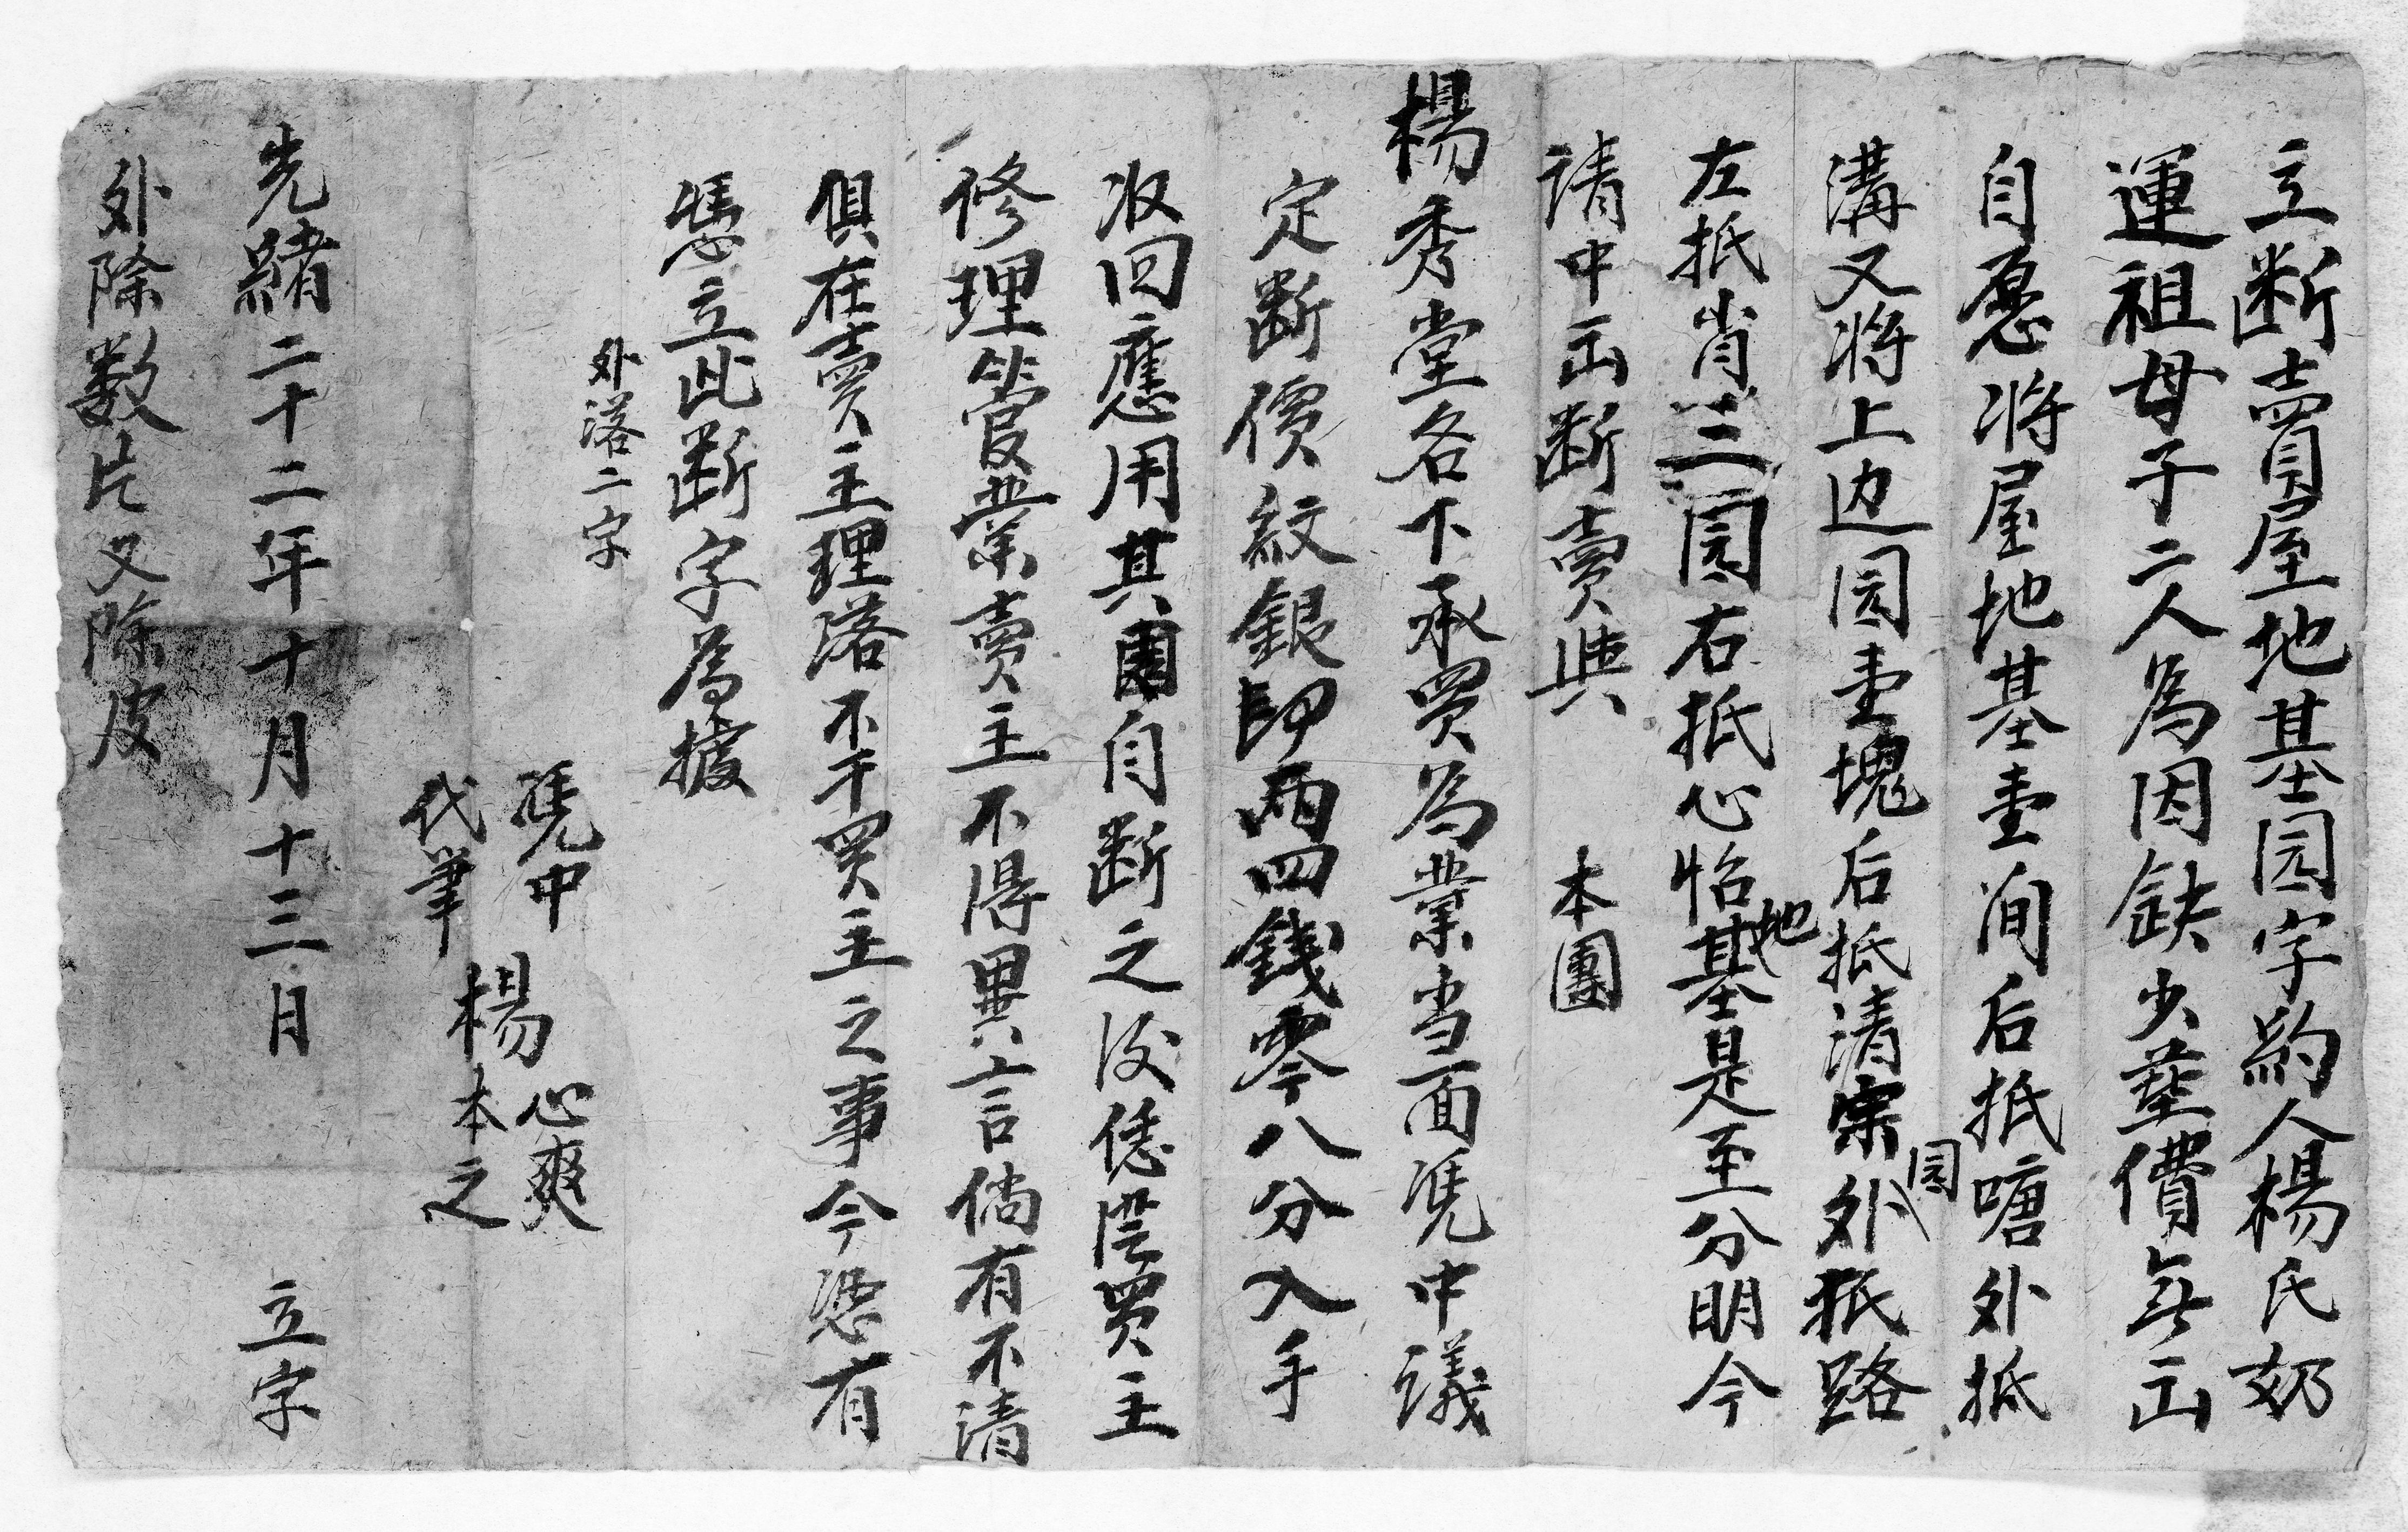 立断賣屋地基园字約人楊氏奶
運祖母子二人為因缺少塟費無出
自愿将屋地基壹间后抵塘外抵
溝又将上边园壹塊后抵清宗园外抵路
左抵肖三园右抵心怡地基是至分明今
請中出断賣與 本團
楊秀堂名下承買為業当面凭中議
定断價紋銀 兩四錢零八分入手
收回應用其園自断之後恁從買主
修理管業賣主不得異言倘有不清
俱在賣主理落不干買主之事今恐有
憑立此断字為據
外落二字
凭中 楊心爽
代筆 楊本之
光緒二十二年十月十三日 立字
外除数片又除皮